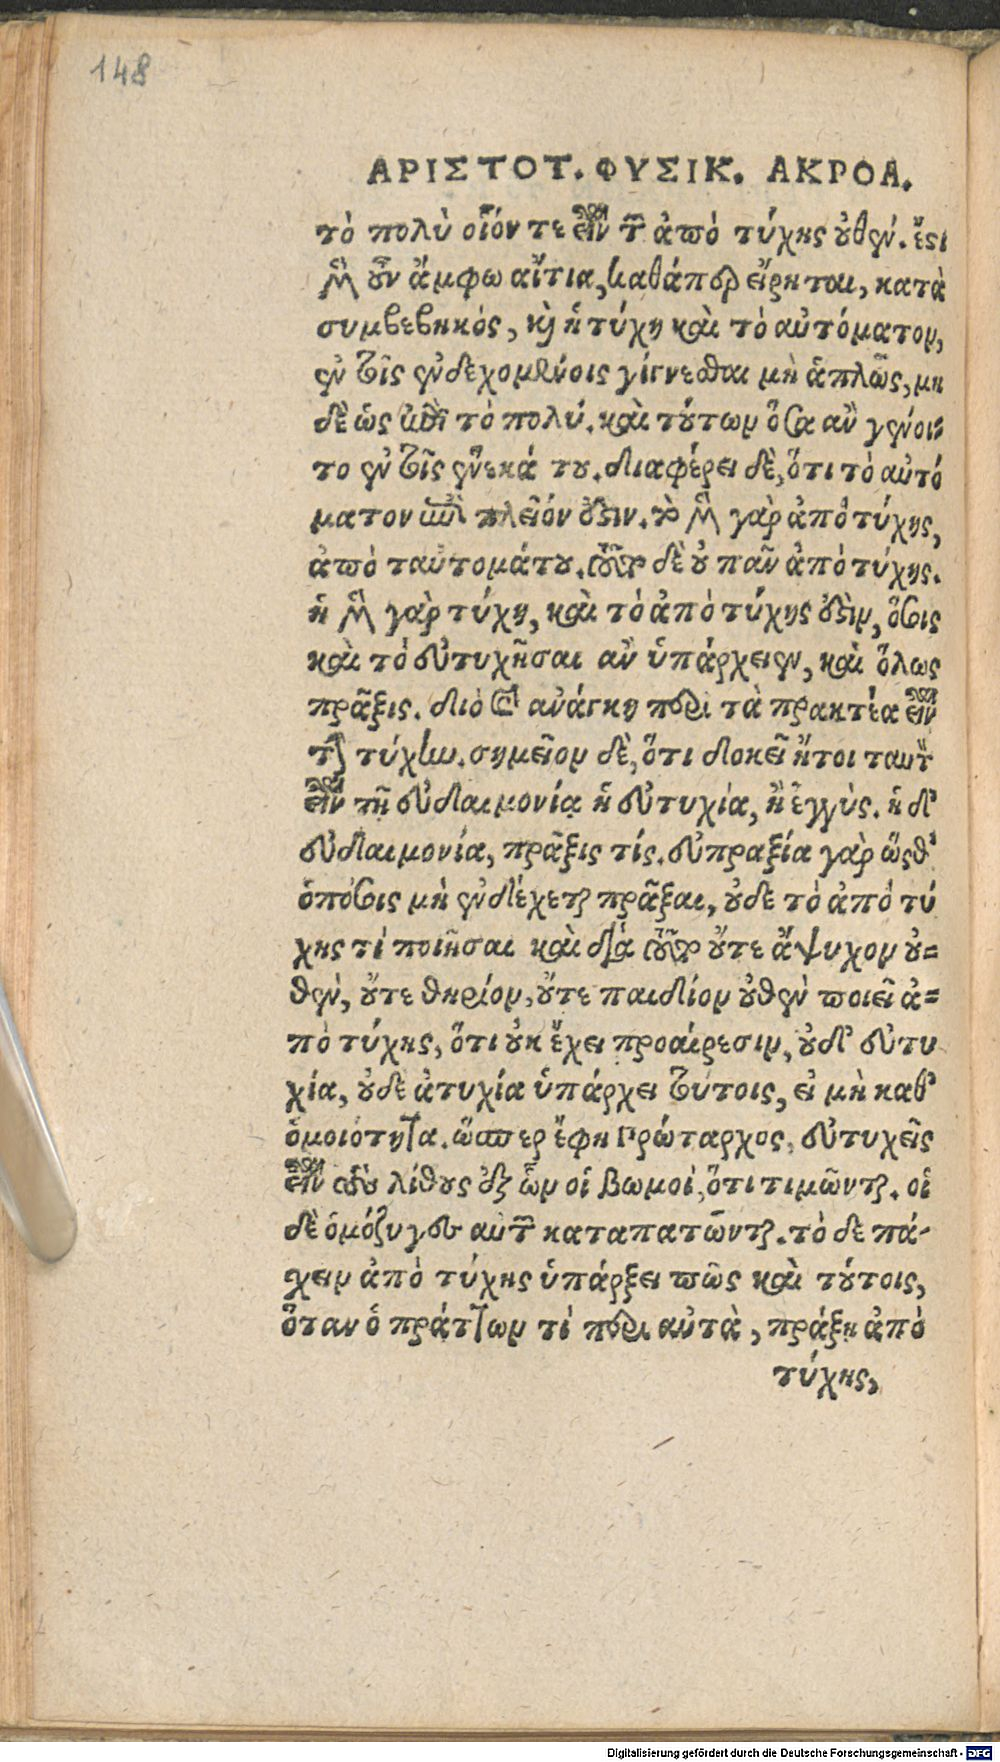 148
ΑΡΙΣΤΟΤ. ΦΥΣΙΚ. ΑΚΡΟΑ.
τὸ πολὺ οἷόν τε εἶναι τῶν ἀπὸ τύχης οὐθέν. ἔστι
μὲν οὖν ἄμφω αἴτια, καθάπερ εἴρηται, κατὰ
συμβεβηκός, καὶ ἡ τύχη καὶ τὸ αὐτόματον,
ἐν τοῖς ἐνδεχομένοις γίγνεσθαι μὴ ἁπλῶς, μη
δὲ ὡς ἐπὶ τὸ πολύ. καὶ τούτων ὅσα ἂν γένοι-
το ἐν τοῖς ἕνεκά του. διαφέρει δὲ, ὅτι τὸ αὐτό
ματον ἐπὶ πλεῖόν ἐστιν. τὸ μὲν γὰρ ἀπὸ τύχης,
ἀπὸ ταὐτομάτου. τοῦτο δὲ οὐ πᾶν ἀπὸ τύχης.
ἡ μὲν γὰρ τύχη, καὶ τὸ ἀπὸ τύχης ἐστὶν, ὅσοις
καὶ τὸ εὐτυχῆσαι ἂν ὑπάρχειεν, καὶ ὅλως
πρᾶξις. διὸ καὶ ἀνάγκη περὶ τὰ πρακτέα εἶναι
τὴν τύχην. σημεῖον δὲ, ὅτι δοκεῖ ἤτοι ταυτὸν
εἶναι τῇ εὐδαιμονίᾳ ἡ εὐτυχία, ἢ ἐγγὺς. ἡ δ'
εὐδαιμονία, πρᾶξις τίς. εὐπραξία γὰρ ὥσθ'
ὁπόσοις μὴ ἐνδέχεται πρᾶξαι, οὐδε τὸ ἀπὸ τύ
χης τὶ ποιῆσαι καὶ διὰ τοῦτο οὔτε ἄψυχον οὐ-
θὲν, οὔτε θηρίον, οὔτε παιδίον οὐθὲν ποιεῖ ἀ-
πὸ τύχης, ὅτι οὐκ ἔχει προαίρεσιν, οὐδ' εὐτυ
χία, οὐδε ἀτυχία ὑπάρχει τούτοις, εἰ μὴ καθ'
ὁμοιότητα. ὥσπερ ἔφη Πρώταρχος, εὐτυχεῖς
εἶναι τοὺς λίθους ἐξ ὧν οἱ βωμοὶ, ὅτι τιμῶνται. οἱ
δὲ ὁμόζυγες αὐτῶν καταπατῶνται. τὸ δε πά-
σχειν ἀπὸ τύχης ὑπάρξει πῶς καὶ τούτοις,
ὅταν ὁ πράττων τὶ περὶ αὐτὰ, πράξῃ ἀπὸ
τύχης,
Digitalisierung gefördert durch die Deutsche Forschungsgemeinschaft - DFG